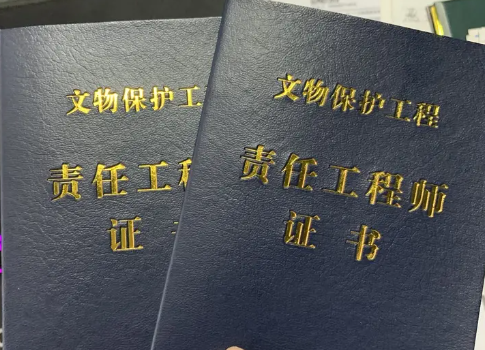 文物保护工
责任工程
证书
文物保护工程
责任工程师
证书